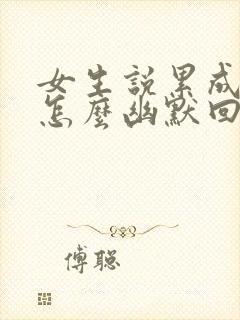 女生説累成
怎麼幽默回
傅聪